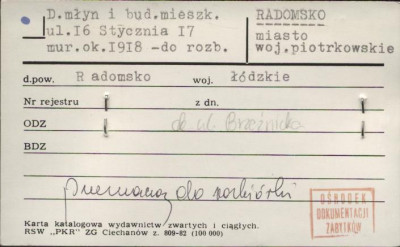 D.młyn i bud.mieszk.
ul.I6 Stycznia I7
mur.ok.I9I8 -do rozb.
RADOMSKO
miasto
woj.piotrkowskie
d.pow. R adomsko woj. łódzkie
Nr rejestru z dn.
ODZ ul. Brzeźnicka
BDZ
do rozbiórki
OŚRODEK
DOKUMENTACJI
ZABYTKÓW
Karta katalogowa wydawnictw zwartych i ciągłych.
RSW „PKR" ZG Ciechanów z. 809-82 (100 000)